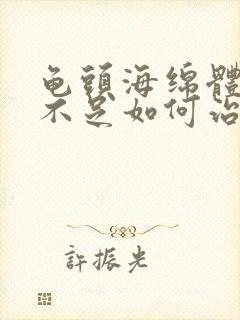 龟頭海绵體
不足如何治
許振光